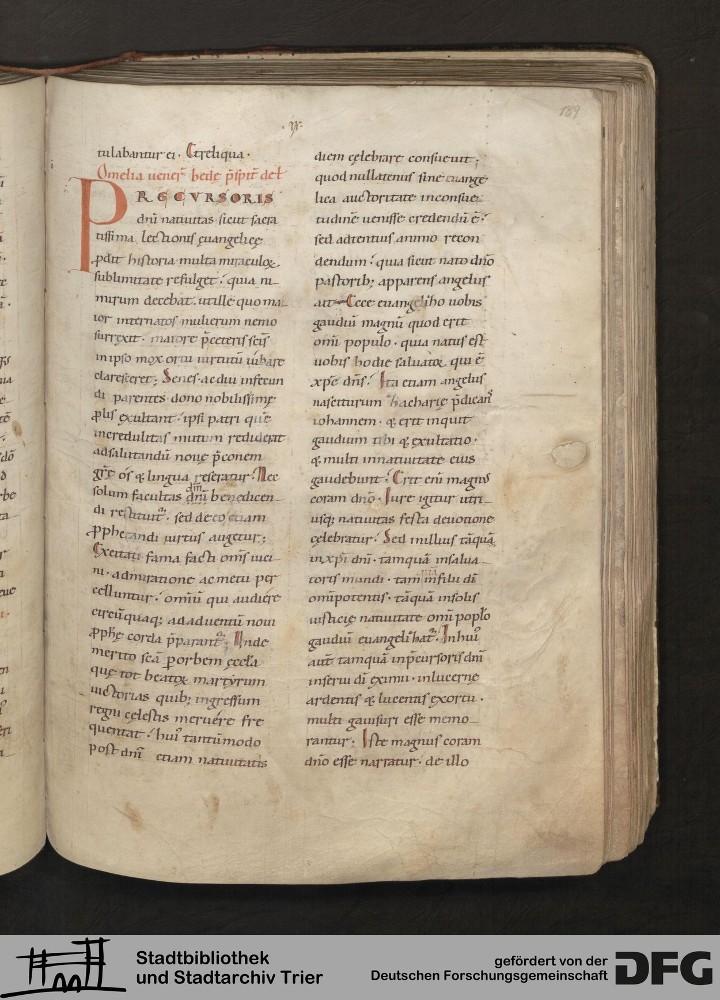 189
tulabantur ei. Et reliqua.
Omelia vener͂ bede p̄sƀit de ł
PRECVRSORIS
dn̄i natiuitas sicut sacra
tissima lectionis ęuangelicę
ꝓdit historia multa miraculoꝝ
sublimitate refulget. quia ni
mirum decebat. ut ille quo ma
ior inter natos mulierum nemo
surrexit. maiore p̄ ceteris sc̄is
in ipso mox ortu uirtutū iubare
claresceret; Senes ac diu infecun
di parentes dono nobilissimę
ꝓlis exultant. ipsi patri quē
incredulitas mutum reddiderat
ad salutandū nouę p̄conem
gr̄ę os & lingua reseratur. Nec
solum facultas dn̄m benedicen
di restituit᷑. sed de eo etiam
ꝓphetandi uirtus augetur;
Excitati fama facti om̄s uici
ni. admiratione ac metu per
celluntur. omniū qui audiere
circūquaq; ad aduentū noui
ꝓphę corda p̄parant᷑. Unde
merito sc̄a ꝑ orbem ęcclȩ̄a
quę tot beatoꝝ martyrum
uictorias quib; ingressum
regni cęlestis meruere fre
quentat. hui᷒ tantūmodo
post dn̄m etiam natiuitatis
diem cęlebrare consueuit;
quod nullatenus sine euange
lica auctoritate in consue
tudinē uenisse credendū ē.
sed adtentius animo recon
dendum. quia sicut nato dn̄o
pastorib; apparens angelus
ait. Ecce euangeliho uobis
gaudiū magnū quod erit
om̄i populo. quia natus est
uobis hodie saluator qui ē
xp̄c dn̄s. Ita etiam angelus
nasciturum zacharię p̄dicans
iohannem. & erit inquit
gaudium tibi & exultatio.
& multi in natiuitate eius
gaudebunt. Erit eni̅ magnus
coram dn̄o. Iure igitur utri
usq; natiuitas festa deuotione
cęlebratur. Sed in illius tāquā
in xp̄i dn̄i. tamquā in salua
toris mundi. tamquā in filii dī
om̄ipotentis. tāquā in solis
iusticię natiuitate om̄i popło
gaudiū euangelihat᷑. In hui᷒
aut̄ tamquā in p̄cursoris dn̄i
in serui dī eximii. in lucerne
ardentis & lucentis exortu.
multi gauisuri esse memo
rantur; Iste magnus coram
dn̄o esse narratur. de illo
Stadtbibliothek
und Stadtarchiv Trier
gefördert von der
Deutschen Forschungsgemeinschaft
DFG